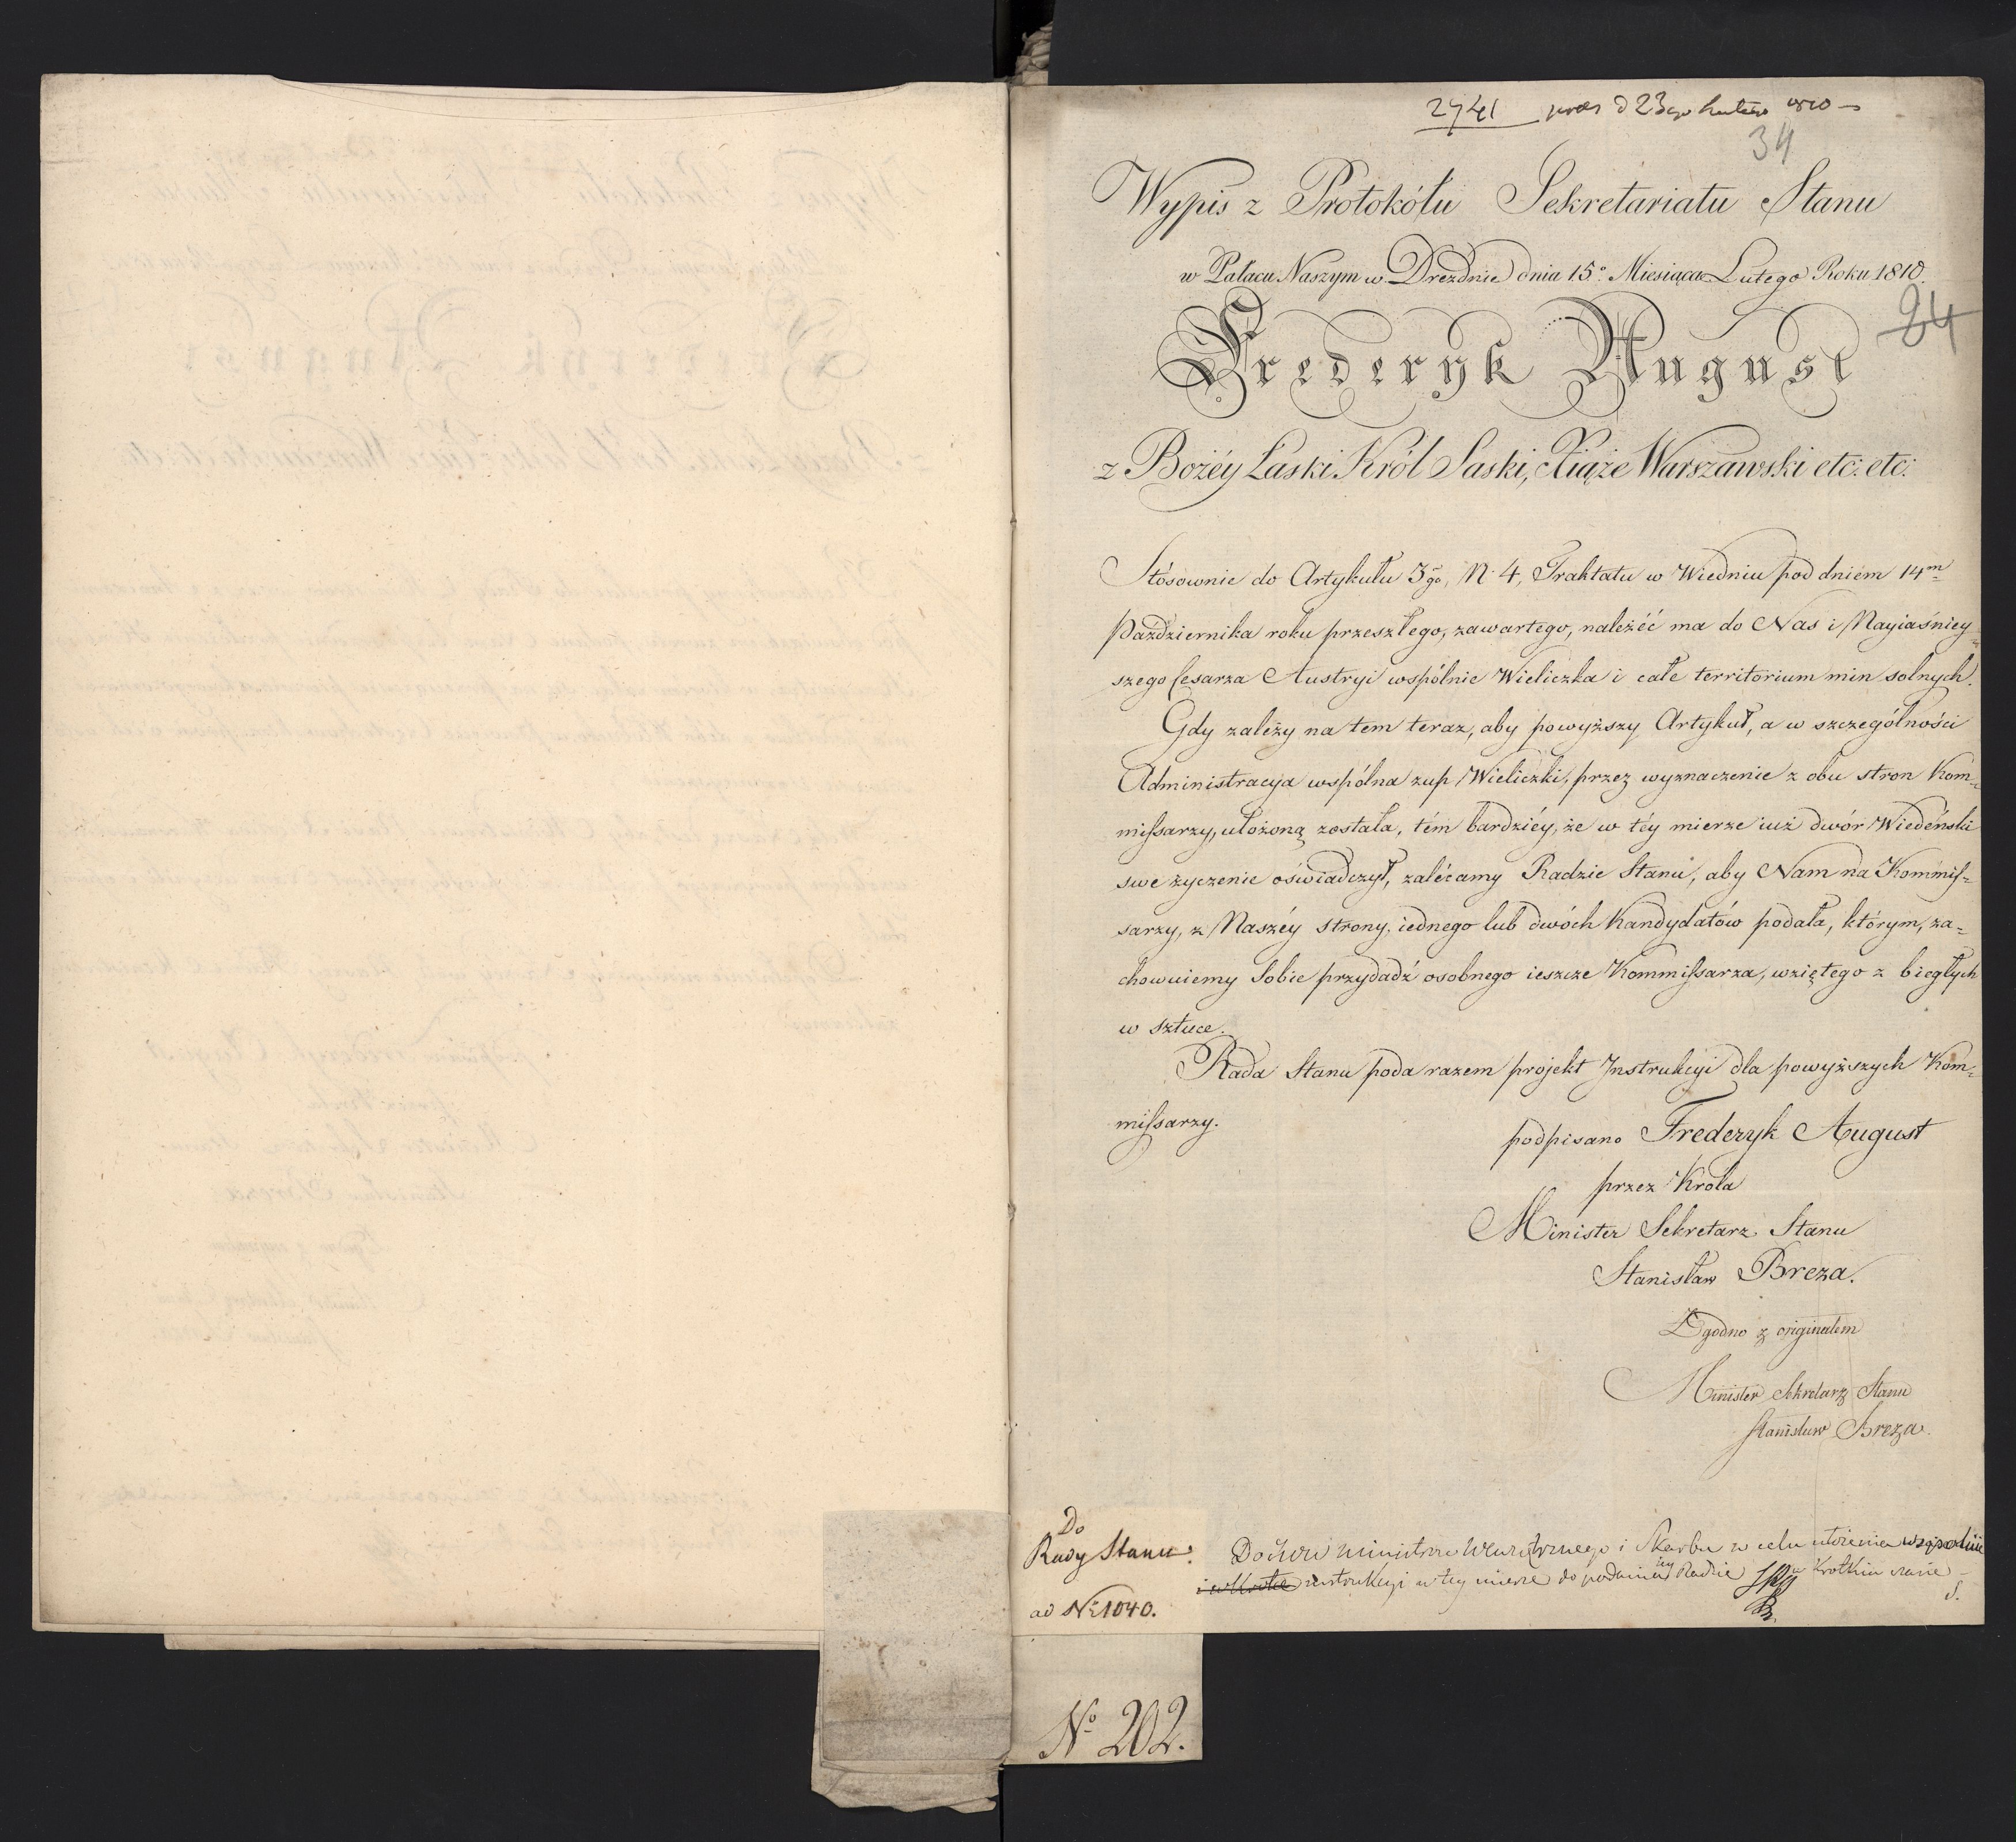 2741 prez d 23go Lutego 1810
34
Wypis z Protokółu Sekretariatu Stanu
w Pałacu Naszym w Dreźdnie dnia 15o Miesiąca Lutego Roku 1810.
84
Frederyk August
z Bożéy Łaski Król Saski, Xiąże Warszawski etc: etc:
Stósownie do Artykułu 3go, N. 4, Traktatu w Wiedniu pod dniem 14m
Października roku przeszłego, zawartego, należéć ma do Nas i Nayiaśniey-
szego Cesarza Austryi wspólnie Wieliczka i całe territorium min solnych.
Gdy zależy na tem teraz, aby powyższy Artykuł, a w szczególności
Administracya wspólna żup Wieliczki, przez wyznaczenie z obu stron Kom-
missarzy, ułożoną została, tém bardziéy, że w téy mierze iuż dwór Wiedéński
swe życzenie oświadczył, zalécamy Radzie Stanu, aby Nam na Kommis=
sarzy, z Naszéy strony, iednego lub dwóch Kandydatów podała, którym, za=
chowuiemy Sobie przydadź osobnego ieszcze Kommissarza, wziętego z biegłych
w sztuce.
Rada Stanu poda razem projekt Instrukcyi dla powyższych Kom-
missarzy.
podpisano Frederyk August
przez Króla
Minister Sekretarz Stanu
Stanisław Breza.
Zgodno z originałem
Minister Sekretarz Stanu
Stanisław Breza.
Do
Rady Stanu.
ad No 1040.
Ministrów Wewnętrznego i Skarbu w celu ułożenia wspólnie
i w krótce instrukcyi w tey mierze do podania iey Radzie w krótkim czasie
S.
No 202.